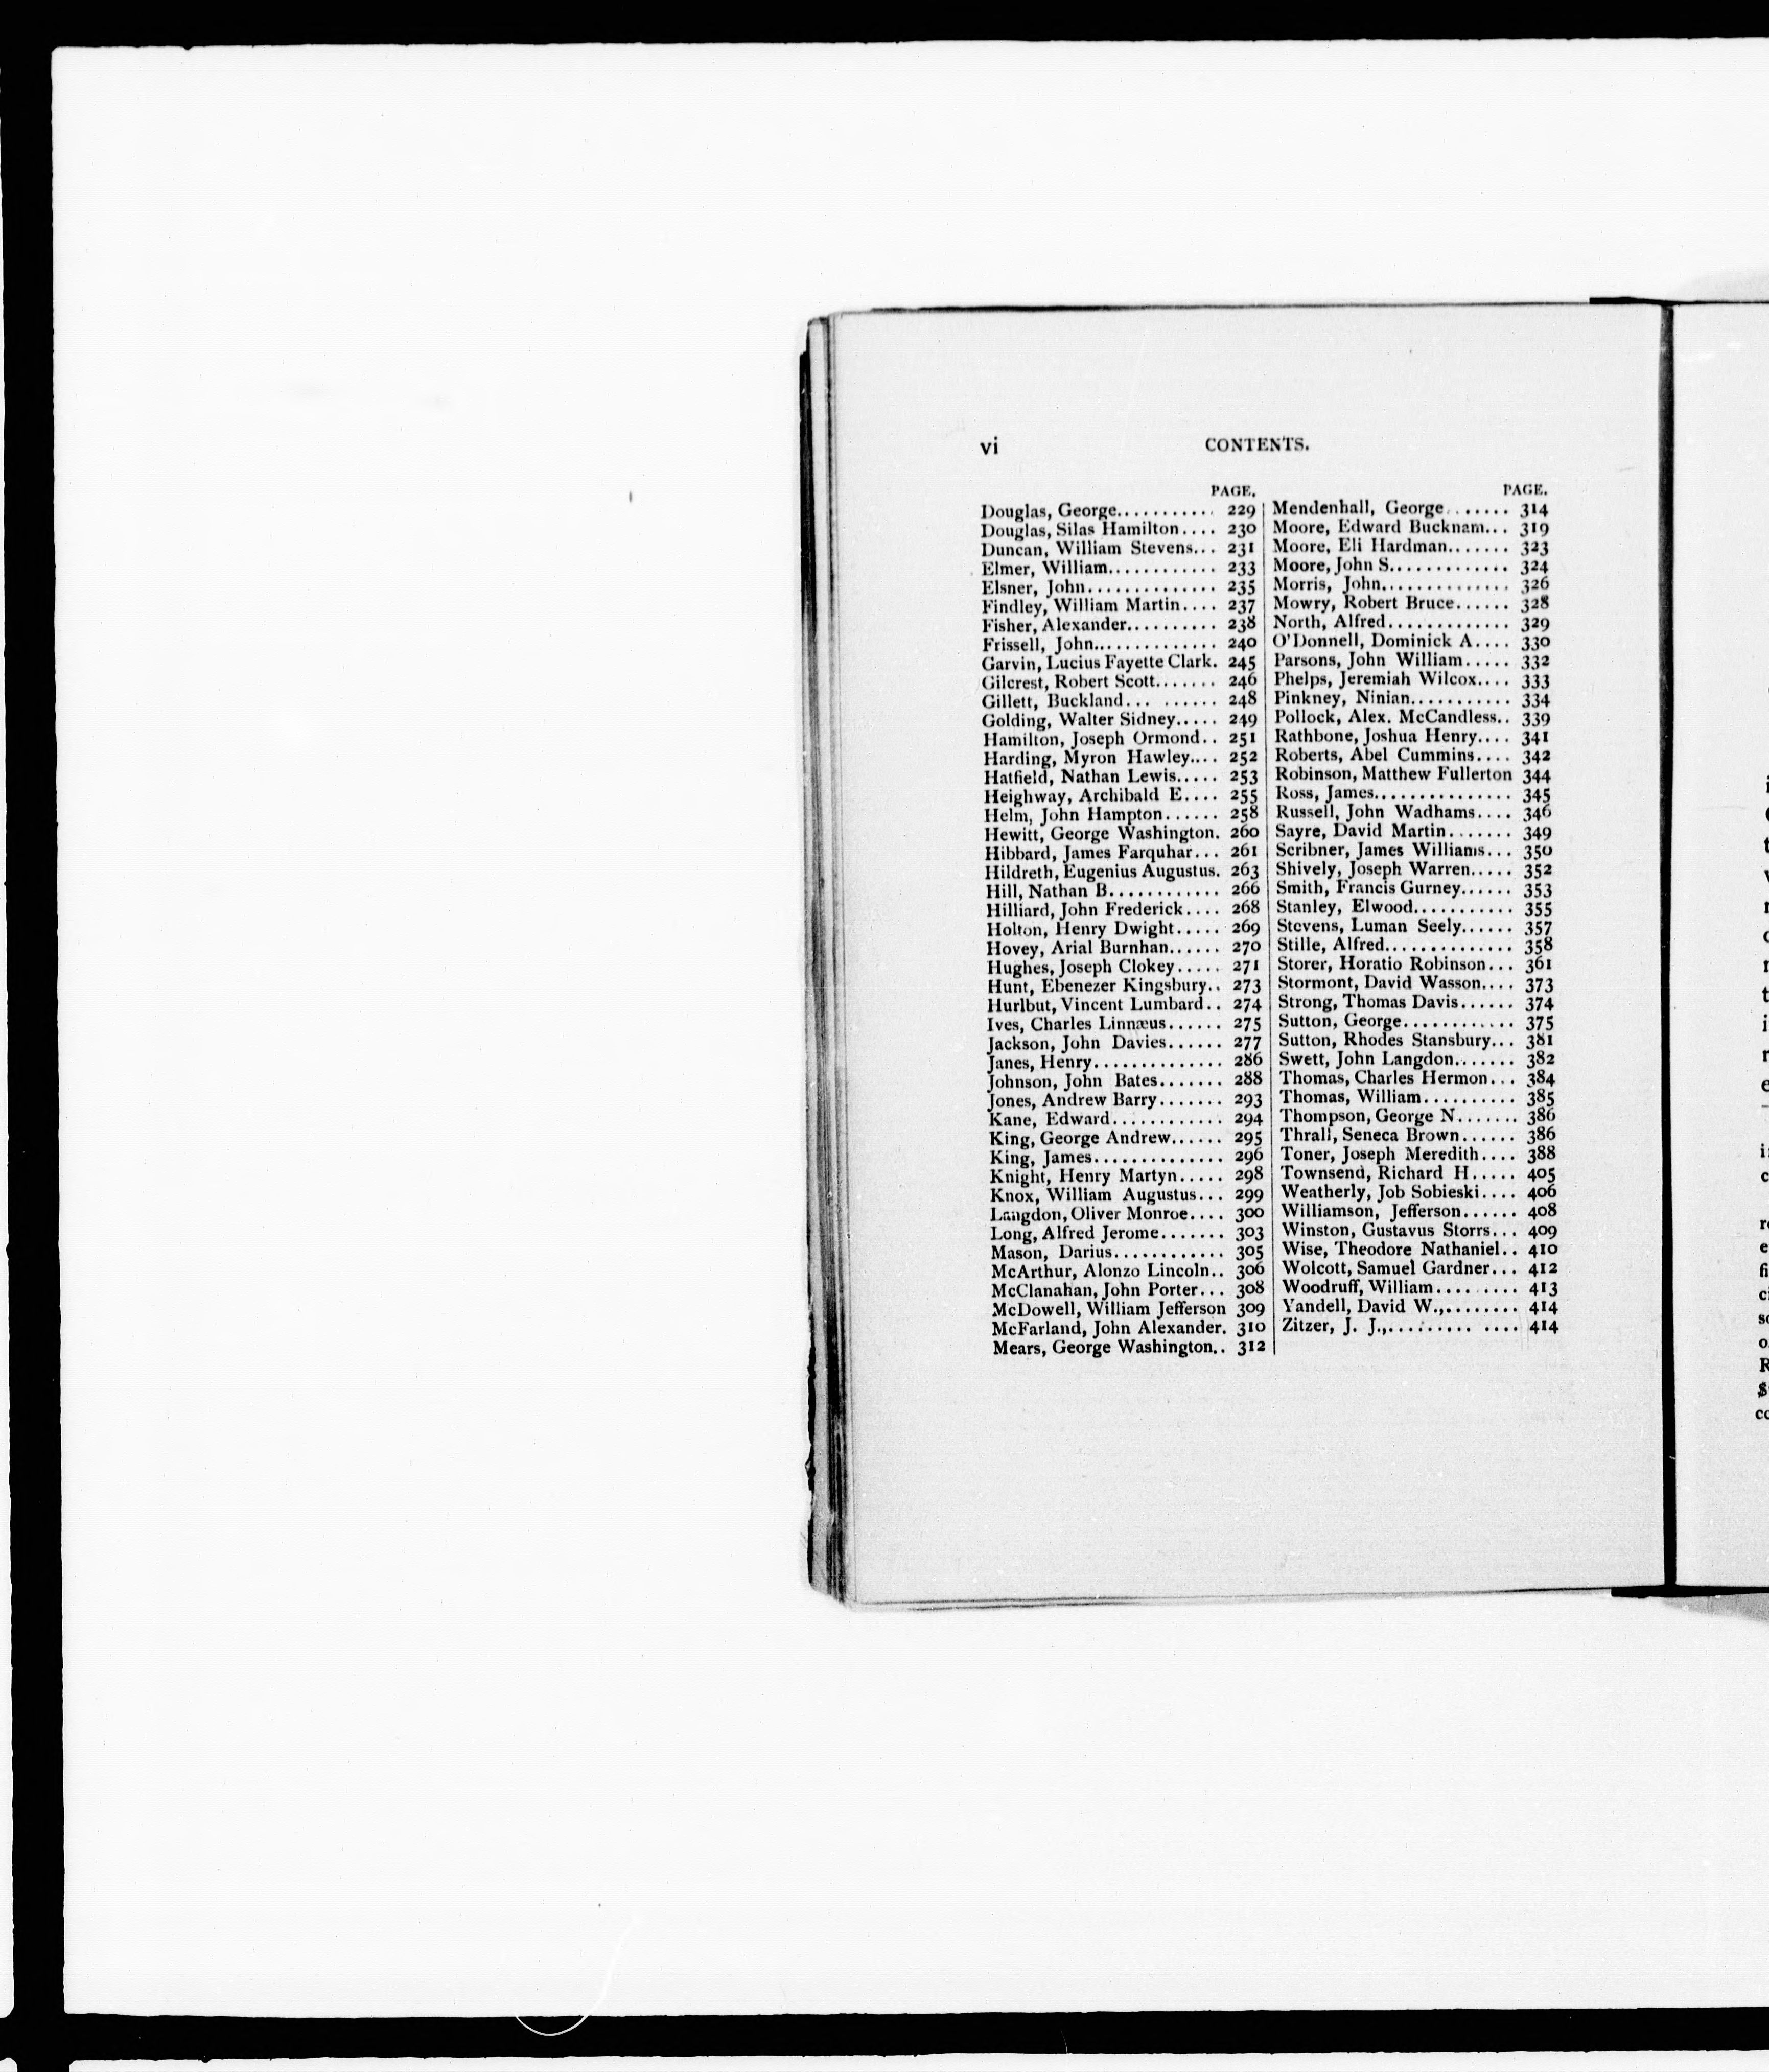 vi CONTENTS.
PAGE.
Douglas, George........... 229
Douglas, Silas Hamilton.... 230
Duncan, William Stevens... 231
Elmer, William............ 233
Elsner, John.............. 235
Findley, William Martin.... 237
Fisher, Alexander.......... 238
Frissell, John.............. 240
Garvin, Lucius Fayette Clark. 245
Gilcrest, Robert Scott....... 246
Gillett, Buckland... ...... 248
Golding, Walter Sidney..... 249
Hamilton, Joseph Ormond.. 251
Harding, Myron Hawley.... 252
Hatfield, Nathan Lewis..... 253
Heighway, Archibald E.... 255
Helm, John Hampton...... 258
Hewitt, George Washington. 260
Hibbard, James Farquhar... 261
Hildreth, Eugenius Augustus. 263
Hill, Nathan B............ 266
Hilliard, John Frederick.... 268
Holton, Henry Dwight..... 269
Hovey, Arial Burnhan...... 270
Hughes, Joseph Clokey..... 271
Hunt, Ebenezer Kingsbury.. 273
Hurlbut, Vincent Lumbard.. 274
Ives, Charles Linnæus...... 275
Jackson, John Davies...... 277
Janes, Henry.............. 286
Johnson, John Bates....... 288
Jones, Andrew Barry....... 293
Kane, Edward............ 294
King, George Andrew...... 295
King, James.............. 296
Knight, Henry Martyn..... 298
Knox, William Augustus... 299
Langdon, Oliver Monroe.... 300
Long, Alfred Jerome....... 303
Mason, Darius............ 305
McArthur, Alonzo Lincoln.. 306
McClanahan, John Porter... 308
McDowell, William Jefferson 309
McFarland, John Alexander. 310
Mears, George Washington.. 312
PAGE.
Mendenhall, George....... 314
Moore, Edward Bucknam... 319
Moore, Eli Hardman....... 323
Moore, John S............. 324
Morris, John.............. 326
Mowry, Robert Bruce...... 328
North, Alfred............. 329
O'Donnell, Dominick A.... 330
Parsons, John William..... 332
Phelps, Jeremiah Wilcox.... 333
Pinkney, Ninian........... 334
Pollock, Alex. McCandless.. 339
Rathbone, Joshua Henry.... 341
Roberts, Abel Cummins.... 342
Robinson, Matthew Fullerton 344
Ross, James............... 345
Russell, John Wadhams.... 346
Sayre, David Martin....... 349
Scribner, James Williams... 350
Shively, Joseph Warren..... 352
Smith, Francis Gurney...... 353
Stanley, Elwood........... 355
Stevens, Luman Seely...... 357
Stille, Alfred.............. 358
Storer, Horatio Robinson... 361
Stormont, David Wasson.... 373
Strong, Thomas Davis...... 374
Sutton, George............ 375
Sutton, Rhodes Stansbury... 381
Swett, John Langdon....... 382
Thomas, Charles Hermon... 384
Thomas, William.......... 385
Thompson, George N....... 386
Thrall, Seneca Brown...... 386
Toner, Joseph Meredith.... 388
Townsend, Richard H..... 405
Weatherly, Job Sobieski.... 406
Williamson, Jefferson...... 408
Winston, Gustavus Storrs... 409
Wise, Theodore Nathaniel.. 410
Wolcott, Samuel Gardner... 412
Woodruff, William......... 413
Yandell, David W.,........ 414
Zitzer, J. J.,......... .... 414